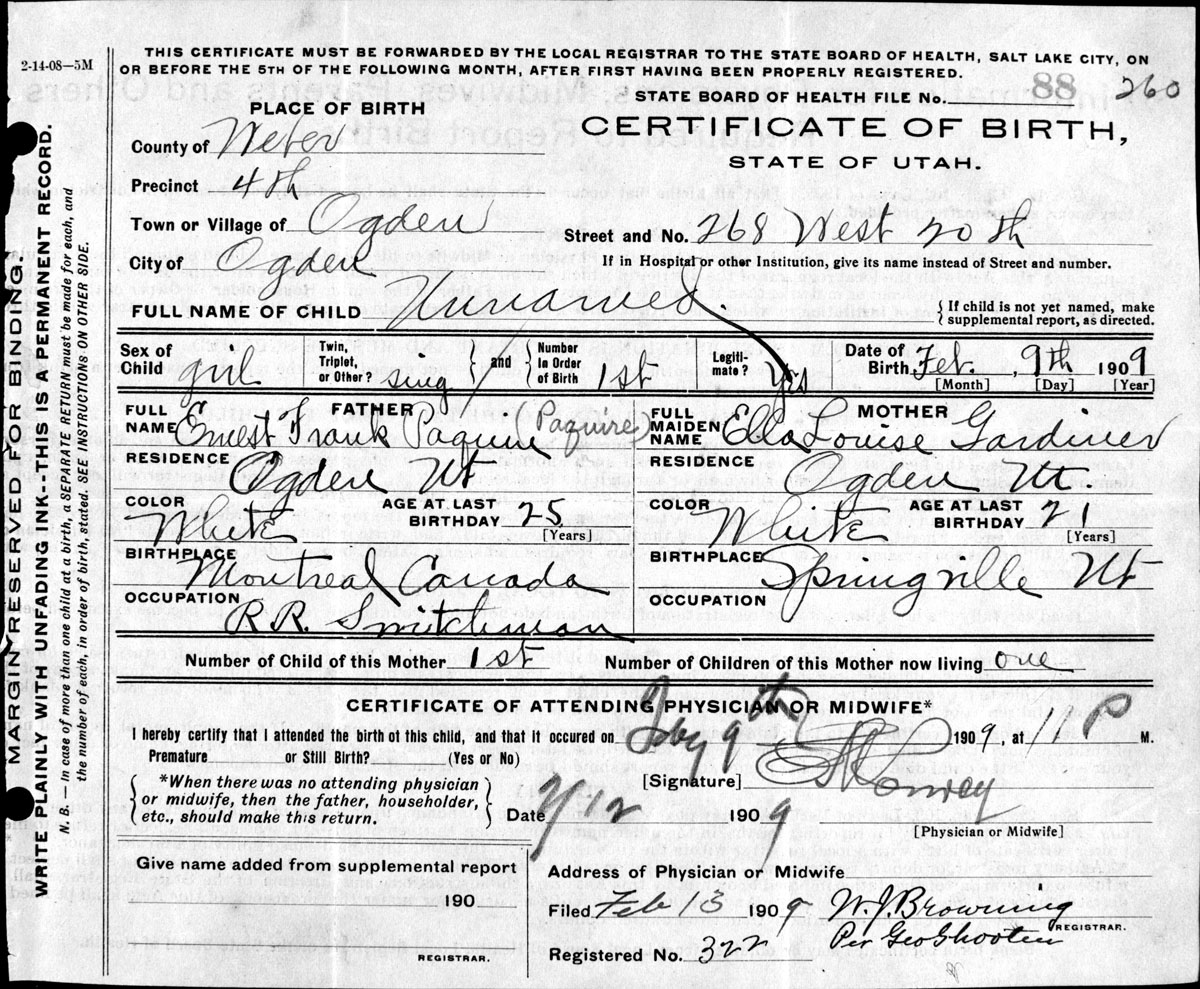 2-14-08—5M
THIS CERTIFICATE MUST BE FORWARDED BY THE LOCAL REGISTRAR TO THE STATE BOARD OF HEALTH, SALT LAKE CITY, ON
OR BEFORE THE 5TH OF THE FOLLOWING MONTH, AFTER FIRST HAVING BEEN PROPERLY REGISTERED.
STATE BOARD OF HEALTH FILE No. 88 260
PLACE OF BIRTH
CERTIFICATE OF BIRTH,
STATE OF UTAH.
County of Weber
Precinct 4th
Town or Village of Ogden
Street and No. 268 West 20th
City of Ogden
If in Hospital or other Institution, give its name instead of Street and number.
FULL NAME OF CHILD Unnamed
{If child is not yet named, make
supplemental report, as directed.
Sex of Child girl
Twin, Triplet, or Other? sing
and
Number in Order of Birth 1st
Legiti-mate? Yes
Date of Birth Feb. 9th 1909
[Month] [Day] [Year]
FATHER
FULL NAME Ernest Frank Paquire (Paquire)
RESIDENCE
Ogden Ut
COLOR White
AGE AT LAST BIRTHDAY 25
[Years]
BIRTHPLACE
Montreal Canada
OCCUPATION
R.R. Switchman
MOTHER
FULL MAIDEN NAME Ella Louise Gardiner
RESIDENCE
Ogden Ut
COLOR White
AGE AT LAST BIRTHDAY 21
[Years]
BIRTHPLACE
Springville Ut
OCCUPATION
Number of Child of this Mother 1st
Number of Children of this Mother now living one
CERTIFICATE OF ATTENDING PHYSICIAN OR MIDWIFE*
I hereby certify that I attended the birth of this child, and that it occured on Feby 9th 1909, at 1 P M.
Premature or Still Birth? (Yes or No)
[Signature]
{*When there was no attending physician
or midwife, then the father, householder,
etc., should make this return.}
Date 2/12 1909
[Physician or Midwife]
Give name added from supplemental report
190
REGISTRAR.
Address of Physician or Midwife
Filed Feb 13 1909 W. J. Browning
REGISTRAR.
Per Geo Shooten
Registered No. 322
MARGIN RESERVED FOR BINDING.
WRITE PLAINLY WITH UNFADING INK.--THIS IS A PERMANENT RECORD.
N. B. — In case of more than one child at a birth, a SEPARATE RETURN must be made for each, and
the number of each, in order of birth stated. SEE INSTRUCTIONS ON OTHER SIDE.